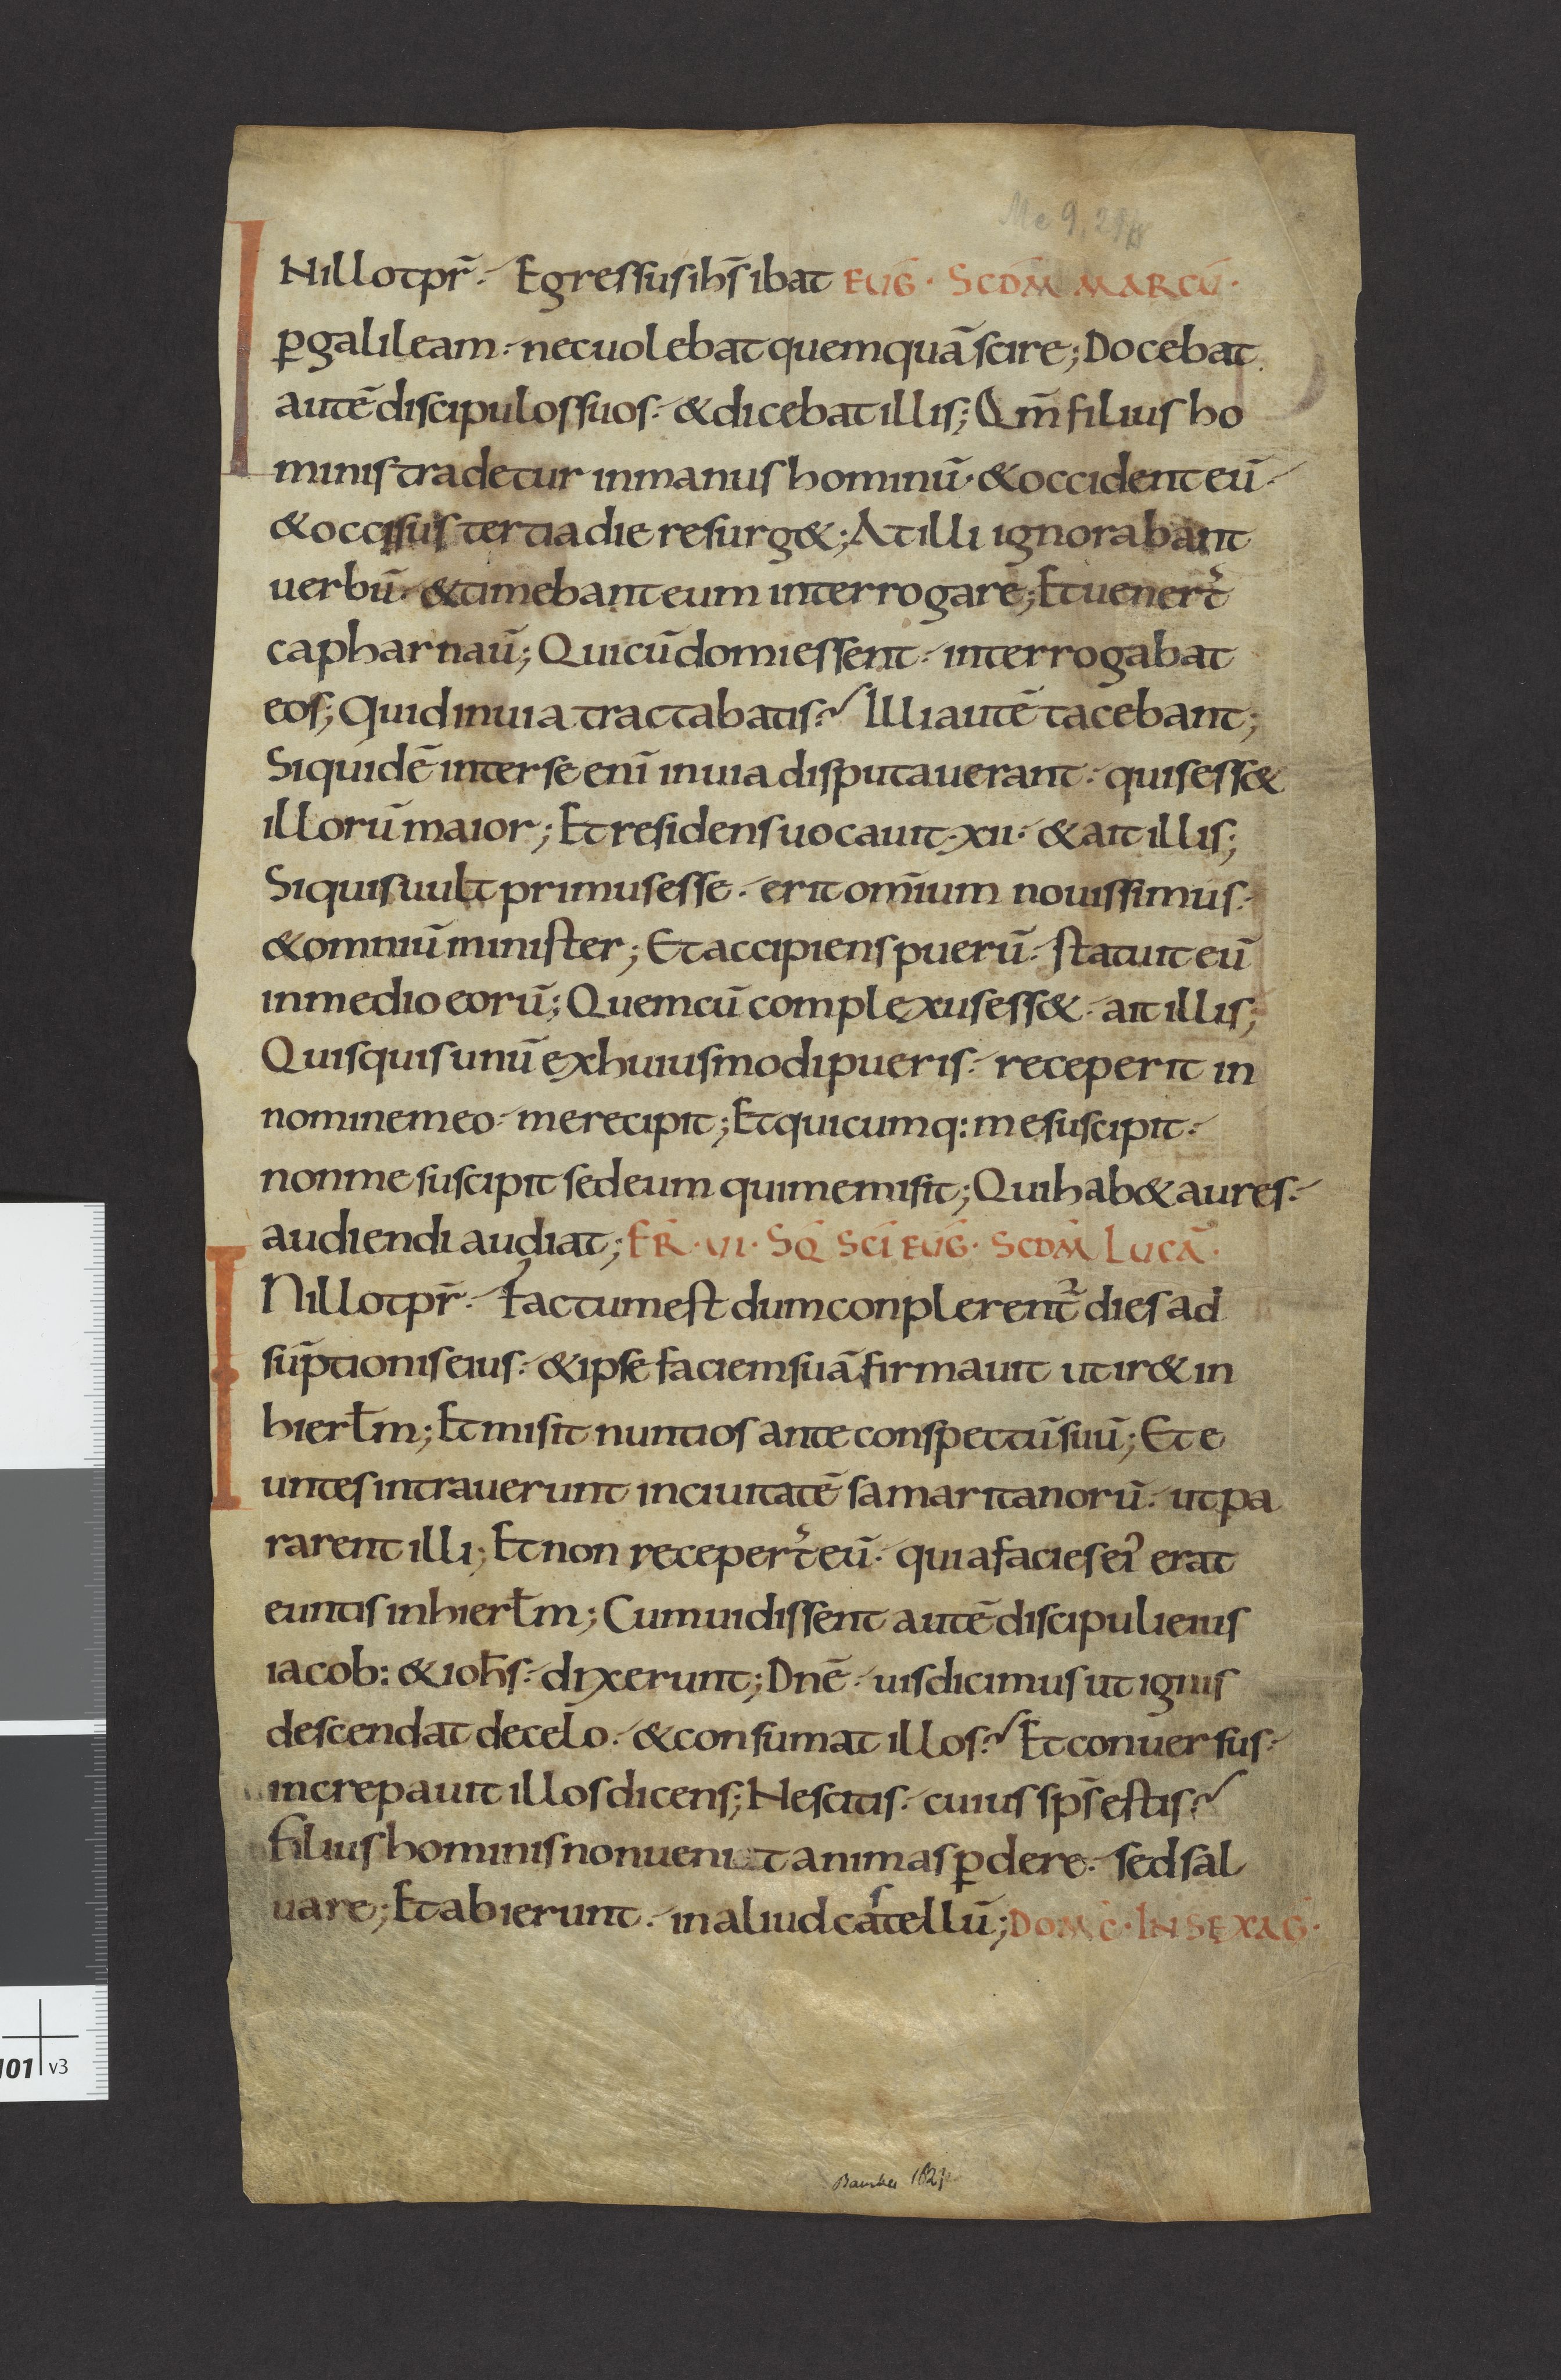 INillotpr̄. Egressus ihs̄ ibat EUG̅. SCDM̅ MARCU̅.
ꝑgalileam. nec uolebat quemquā scire; Docebat
autē discipulos suos. & dicebat illis; Qm̄ filius ho
minis tradetur in manus hominū. & occident eū.
& occisus tertia die resurg&; At illi ignorabant
uerbū. & timebant eum interrogare; Et uener̄t
capharnaū; Qui cū domi essent. interrogabat
eos; Quid in uia tractabatis? Illi autē tacebant;
Siquidē inter se enī in uia disputauerant. quis ess&
illorū maior; Et residens uocauit .xii. & ait illis;
Si quis uult primus esse. erit om̄ium nouissimus.
& omniū minister; Et accipiens puerū. statuit eū
in medio eorū; Quem cū complexus ess&. ait illis;
Quisquis unū ex huiusmodi pueris. receperit in
nomine meo. me recipit; Et quicumq: me suscipit.
non me suscipit sed eum qui me misit; Qui hab& aures.
audiendi audiat; FR̅. VI. SQ̅ SCI̅ EUG̅. SCDM̅ LUCA̅.
INillotpr̄. Factum est dum conplerent᷑ dies ad
sūptionis eius. & ipse faciem suā firmauit ut ir& in
hierłm; Et misit nuntios ante conspectū suū; Et e
untes intrauerunt in ciuitatē samaritanorū. ut pa
rarent illi; Et non receper̄t eū. quia facies ei᾽ erat
euntis in hierłm; Cum uidissent autē discipuli eius
iacob: & ioh̄s. dixerunt; Dnē. uis dicimus ut ignis
descendat de celo. & consumat illos? Et conuersus.
increpauit illos dicens; Nescitis. cuius sp̄s estis?
filius hominis non uenit animas ꝑdere. sed sal
uare; Et abierunt. in aliud castellū; DOM̅C̅. IN SEXAG̅.